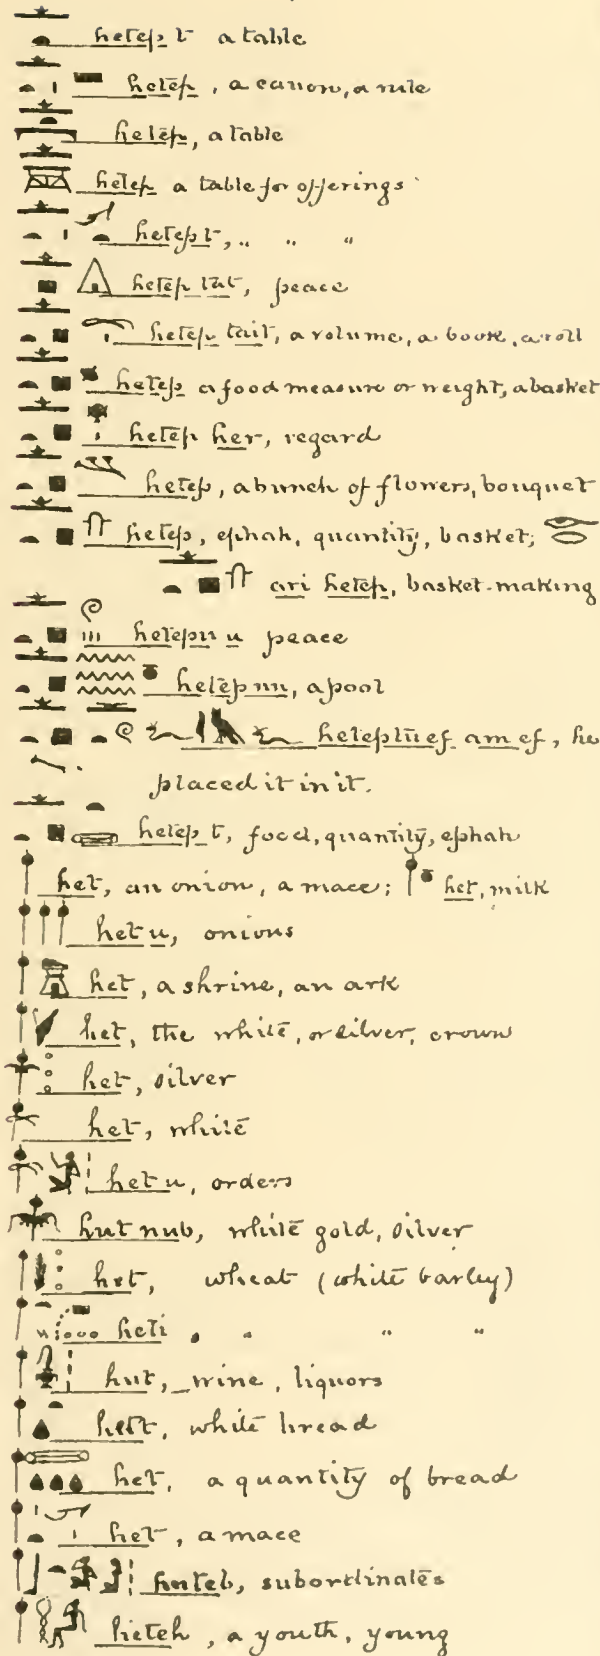 hetep t a table
hetep, a canon, a rule
hetep, a table
hetep a table for offerings
hetept, " " "
hetep tat, peace
hetep tait, a volume, a book, a roll
hetep a food measure or weight, a basket
hetep her, regard
hetep, a bunch of flowers, bouquet
hetep, ephah, quantity, basket;
ari hetep, basket-making
hetepu u peace
hetep mu, a pool
heteptuef am ef, he
placed it in it.
hetep t, food, quantity, ephah
het, an onion, a mace; het, milk
het u, onions
het, a shrine, an ark
het, the white, or silver, crown
het, silver
het, white
het u, orders
hut nub, white gold, silver
het, wheat (white barley)
heti " " " "
hut, wine, liquors
hett, white bread
het, a quantity of bread
het, a mace
huteb, subordinates
heteh, a youth, young